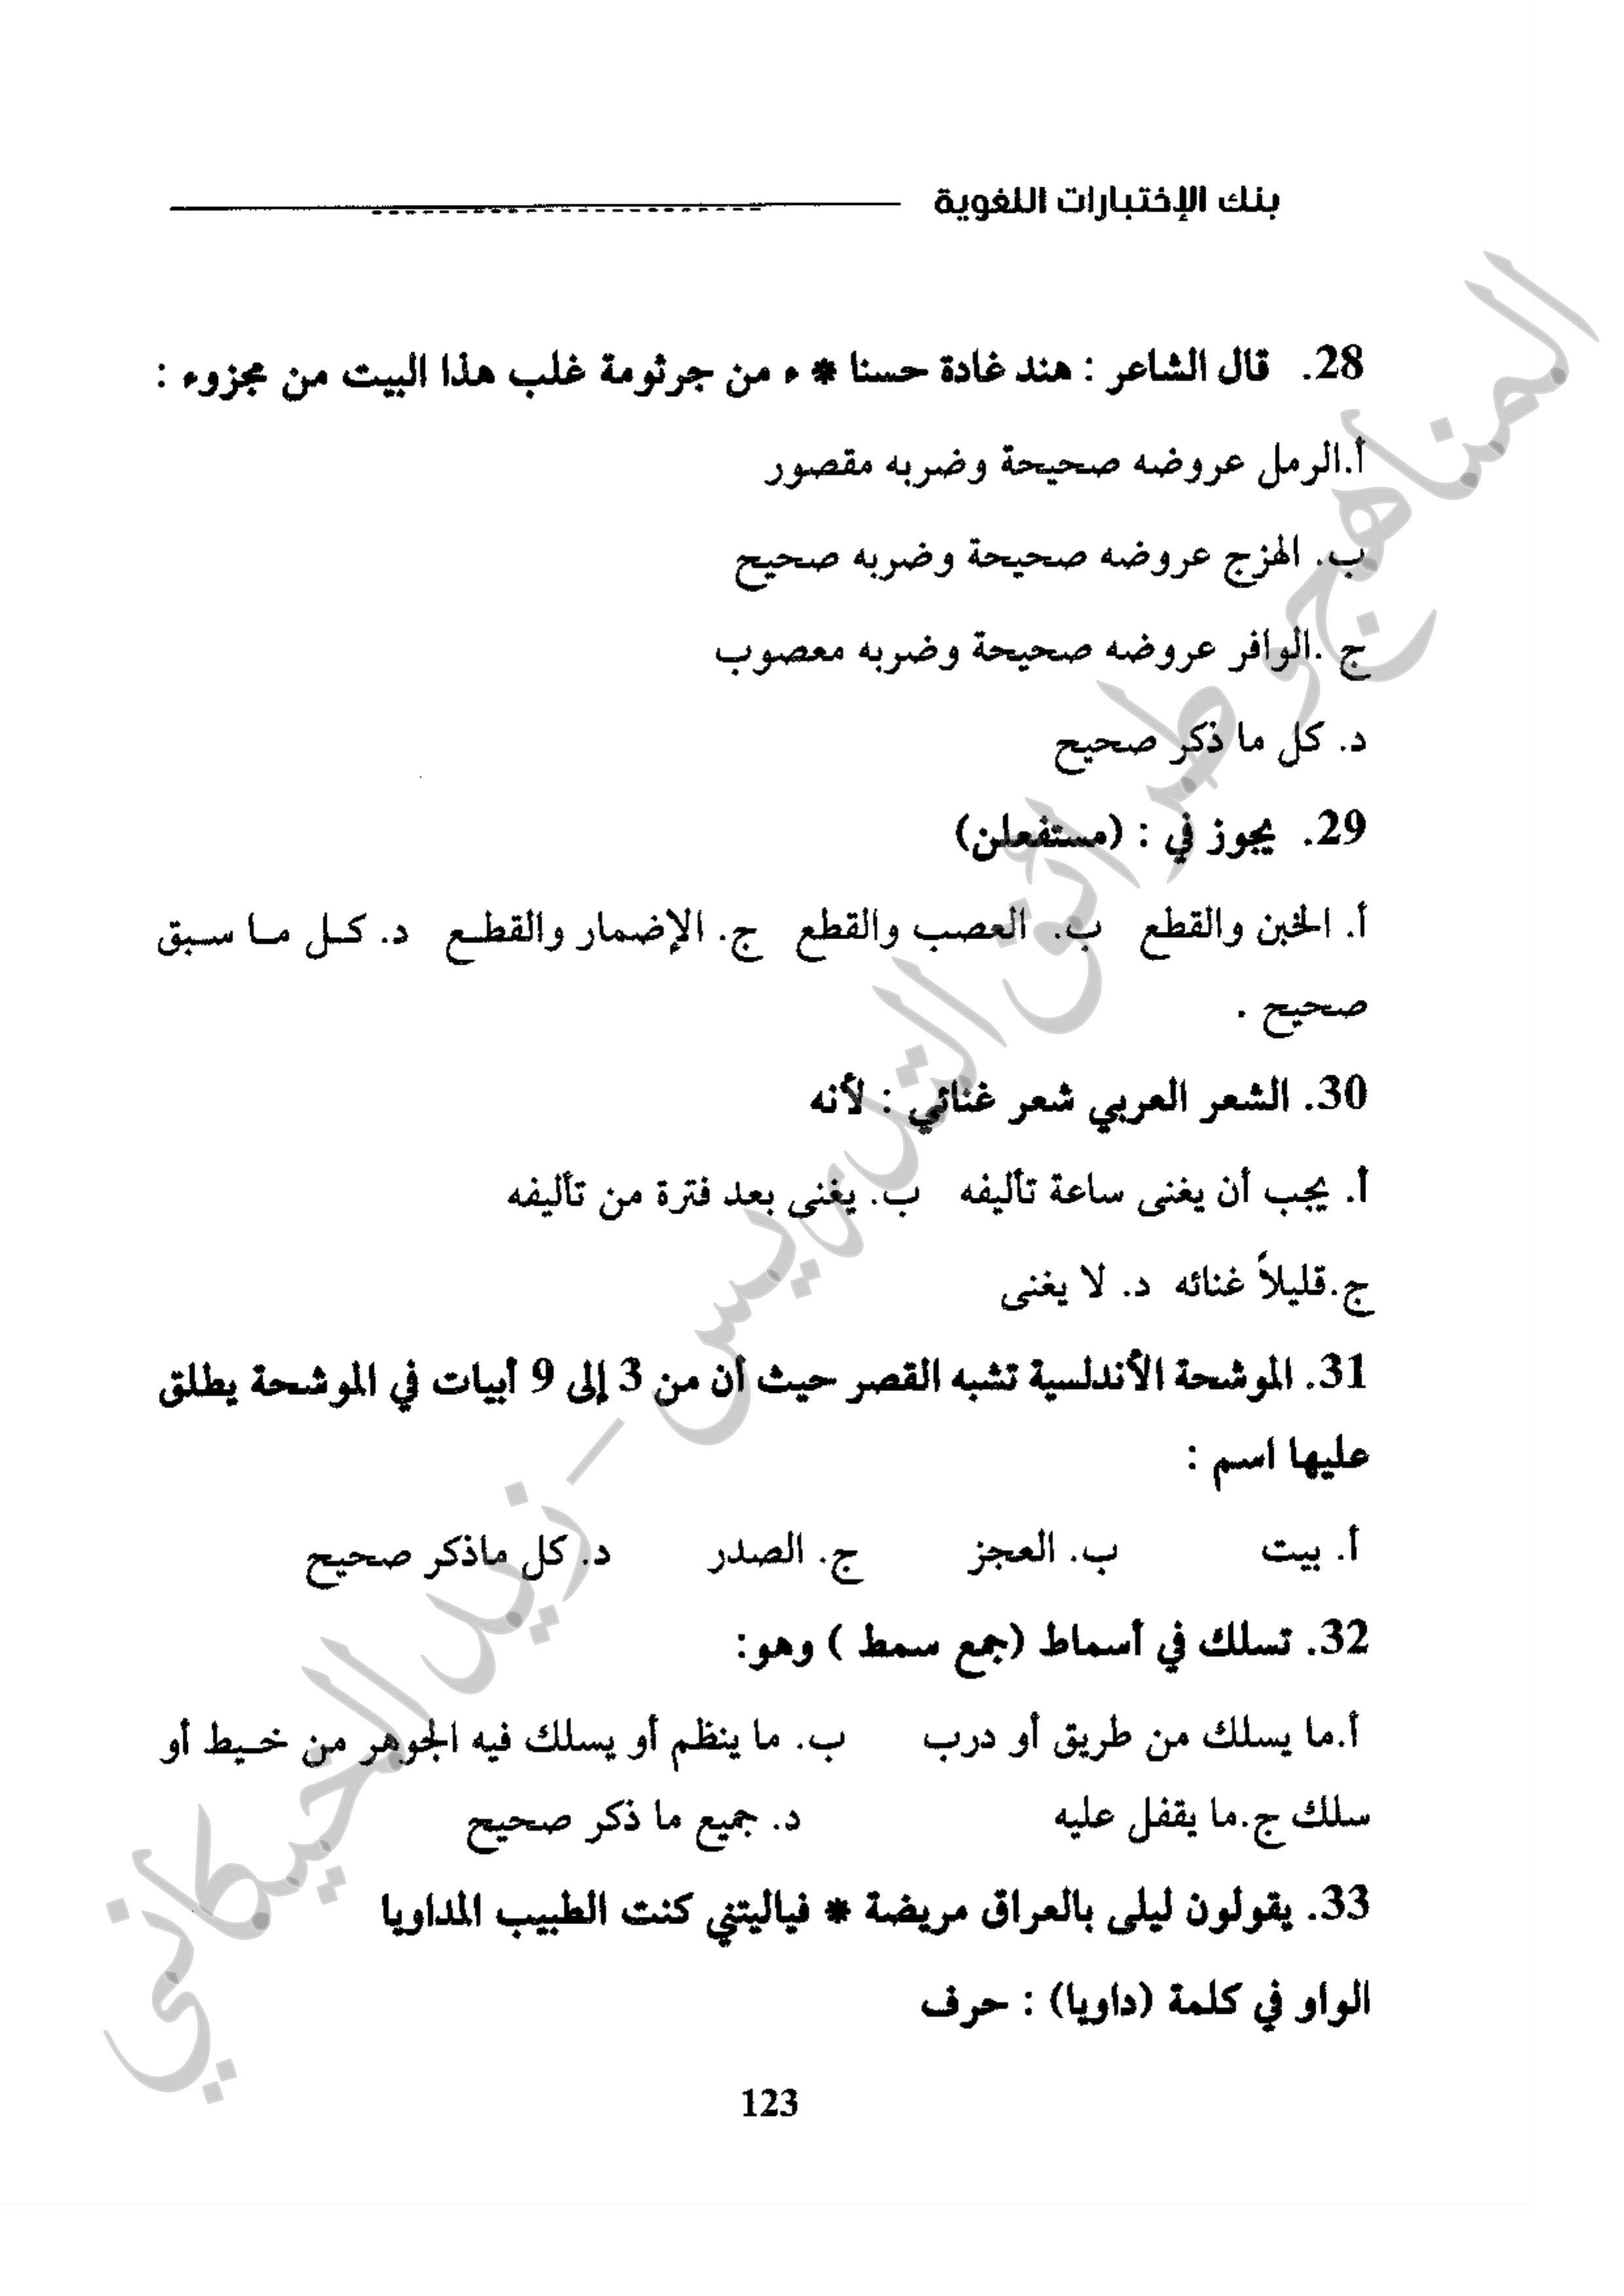 بنك الإختبارات اللغوية
28. قال الشاعر : هند غادة حسنا * ء من جرثومة غلب هذا البيت من مجزوء :
أ.الرمل عروضه صحيحة وضربه مقصور
ب. الهزج عروضه صحيحة وضربه صحيح
ج .الوافر عروضه صحيحة وضربه معصوب
د. كل ما ذكر صحيح
29. يجوز في : (مستفعلن)
أ. الخبن والقطع ب. العصب والقطع ج. الإضمار والقطع د. كل ما سبق
صحيح .
30. الشعر العربي شعر غنائي : لأنه
أ. يجب أن يغنى ساعة تأليفه ب. يغنى بعد فترة من تأليفه
ج.قليلاً غنائه د. لا يغنى
31. الموشحة الأندلسية تشبه القصر حيث أن من 3 إلى 9 أبيات في الموشحة يطلق
عليها اسم :
أ. بيت ب. العجز ج. الصدر د. كل ماذكر صحيح
32. تسلك في أسماط (جمع سمط ) وهو:
أ.ما يسلك من طريق أو درب ب. ما ينظم أو يسلك فيه الجوهر من خيط أو
سلك ج.ما يقفل عليه د. جميع ما ذكر صحيح
33. يقولون ليلى بالعراق مريضة * فياليتني كنت الطبيب المداويا
الواو في كلمة (داويا) : حرف
123
المناهج وطرائق التدريس - زيد الخيكاني